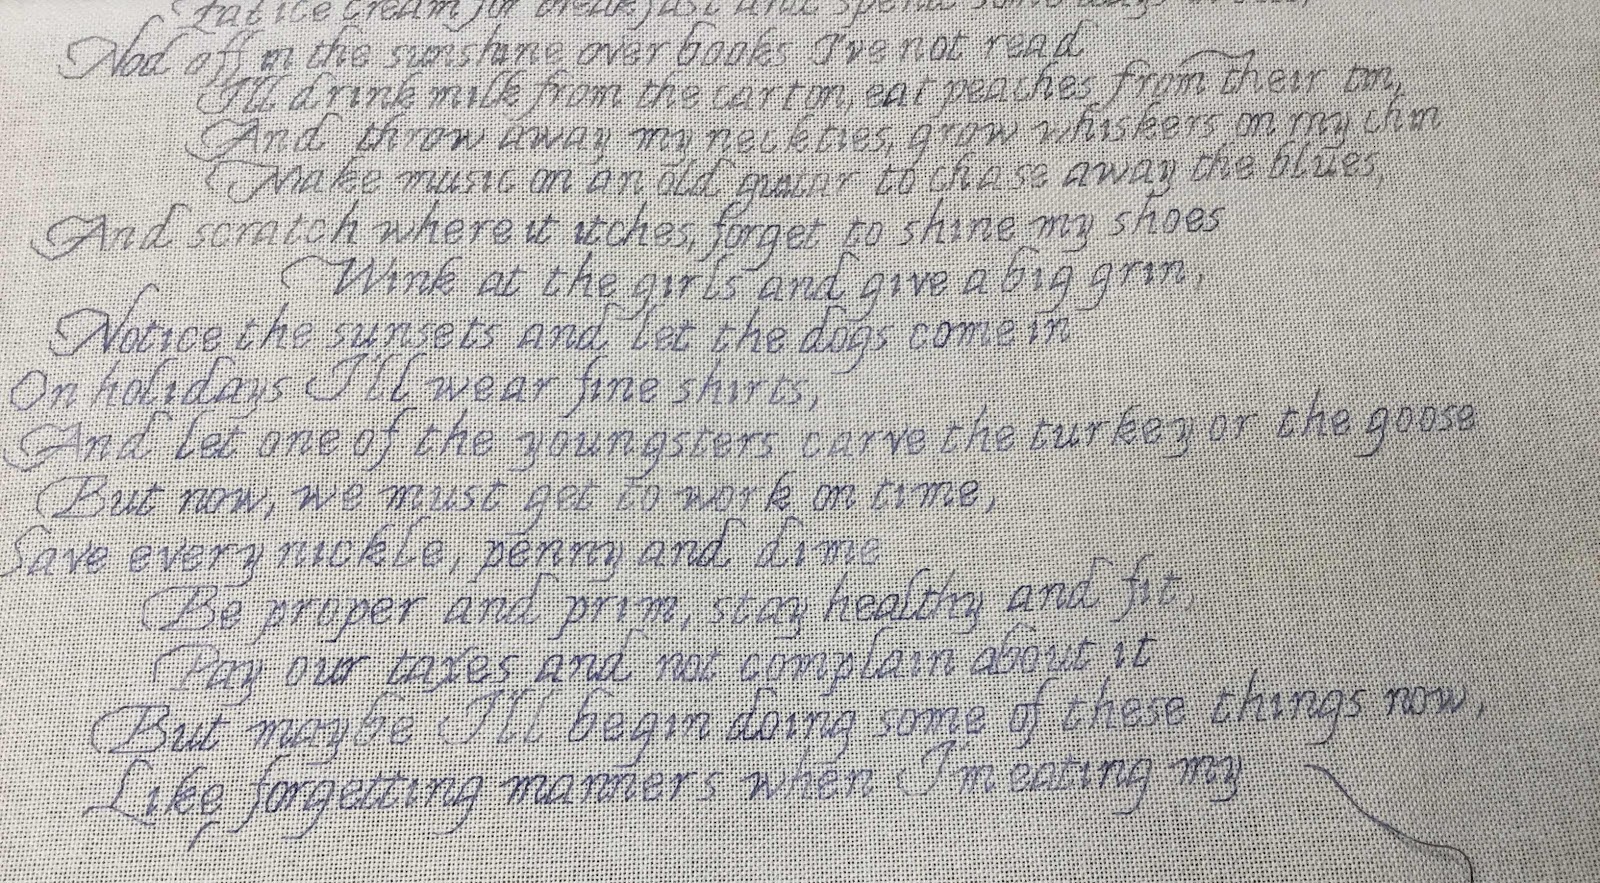 Eat ice cream for breakfast and spend some days
Nod off in the sunshine over books I've not read
I'll drink milk from the carton, eat peaches from their tin,
And throw away my neckties, grow whiskers on my chin
Make music on an old guitar to chase away the blues,
And scratch where it itches, forget to shine my shoes
Wink at the girls and give a big grin,
Notice the sunsets and let the dogs come in
On holidays I'll wear fine shirts,
And let one of the youngsters carve the turkey or the goose
But now, we must get to work on time,
Save every nickle, penny and dime
Be proper and prim, stay healthy and fit,
Pay our taxes and not complain about it
But maybe I'll begin doing some of these things now,
Like forgetting manners when I'm eating my